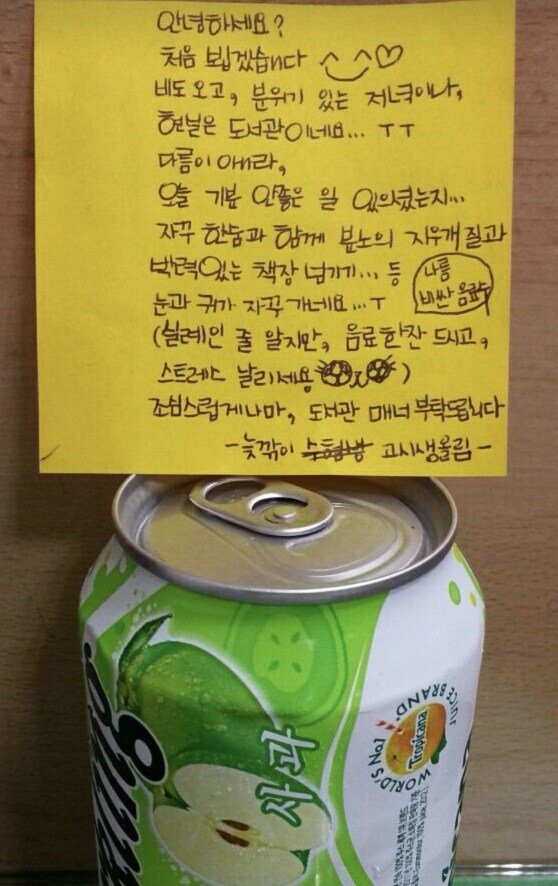 안녕하세요?
처음 뵙겠습니다 ^‿^♡
비도 오고, 분위기 있는 저녁이나,
현실은 도서관이네요... ㅜㅜ
다름이 아니라,
오늘 기분 안좋은 일 있으셨는지...
자꾸 한숨과 함께 분노의 지우개질과
박력있는 책장 넘기기... 등
눈과 귀가 자꾸 가네요...ㅜ
나름
비싼 음료수
(실례인 줄 알지만, 음료한잔 드시고,
스트레스 날리세용)
조심스럽게나마, 도서관 매너 부탁드립니다
-늦깎이 수험생 고시생올림-
사과
WORLD'S No1 JUICE BRAND.
Tropicana